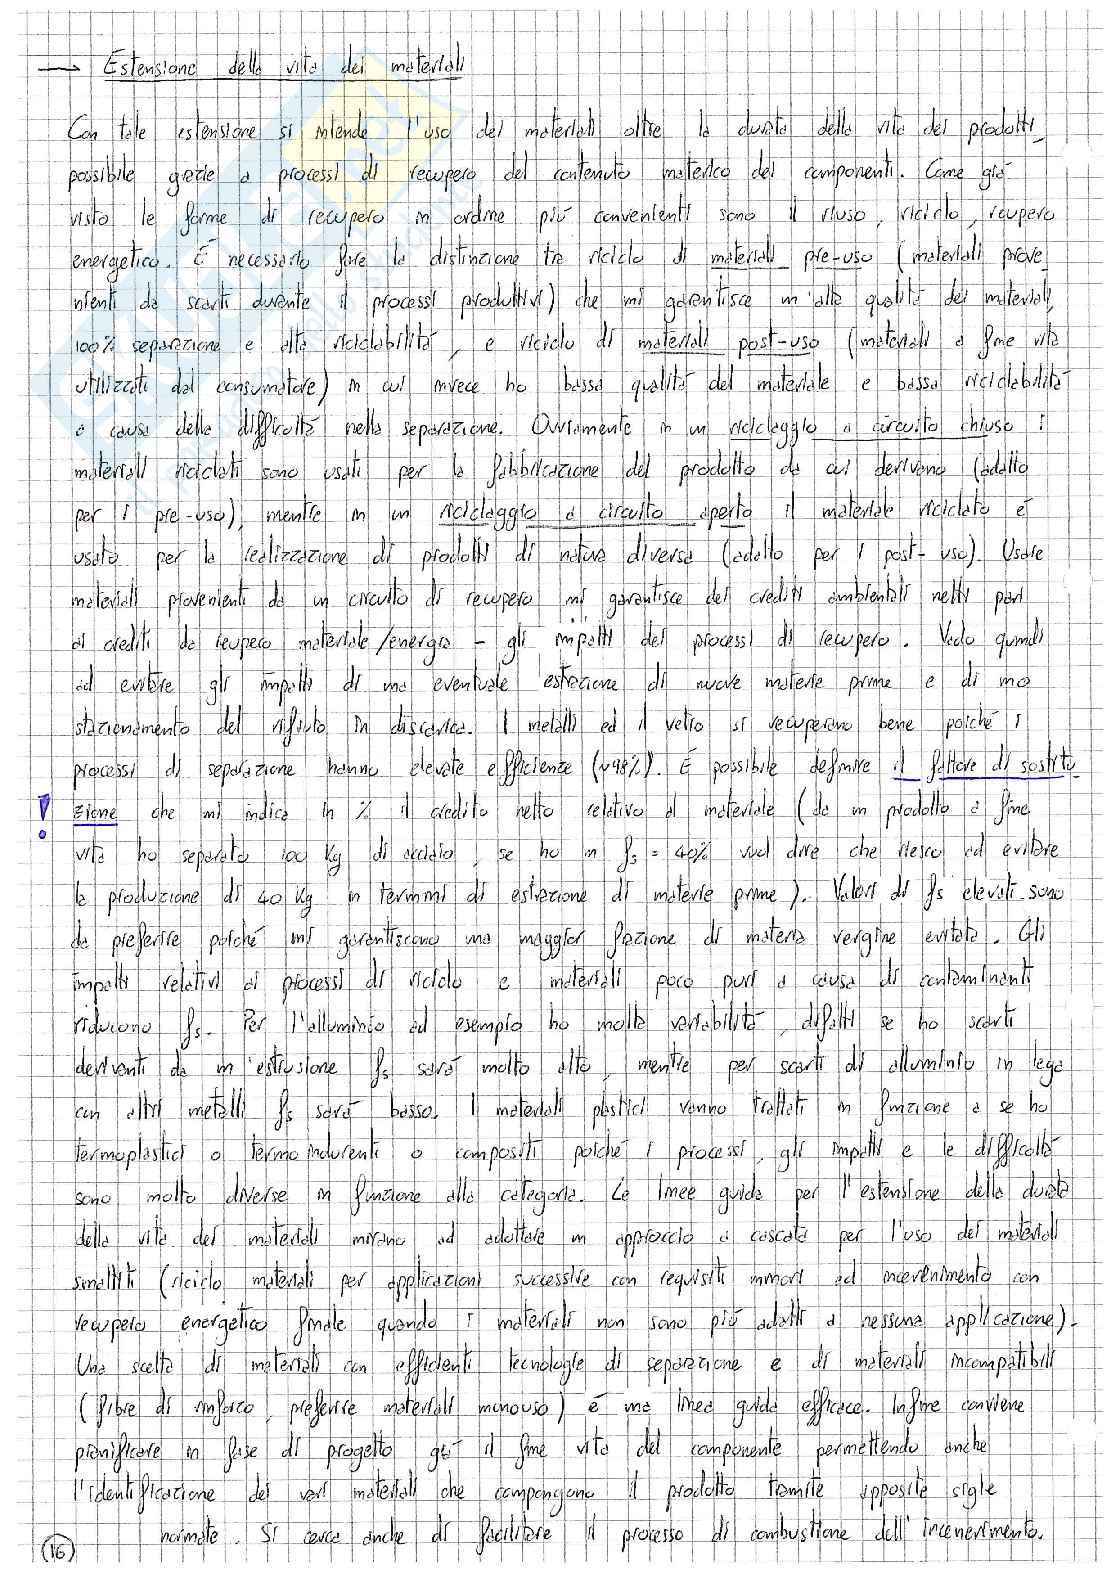 → Estensione della vita dei materiali
Con tale estensione si intende l'uso dei materiali oltre la durata della vita dei prodotti,
possibile grazie a processi di recupero del contenuto materico dei componenti. Come già
visto le forme di recupero in ordine più convenienti sono il riuso, riciclo, recupero
energetico. È necessario fare la distinzione tra riciclo di materiali pre-uso (materiali prove
nienti da scarti durante il processi produttivi) che mi garantisce un'alta qualità dei materiali,
100% separazione e alta riciclabilità, e riciclo di materiali post-uso (materiali a fine vita
utilizzati dal consumatore) in cui invece ho bassa qualità del materiale e bassa riciclabilità
a causa delle difficoltà nella separazione. Ovviamente in un riciclaggio a circuito chiuso i
materiali riciclati sono usati per la fabbricazione del prodotto da cui derivano (adatto
per i pre-uso), mentre in un riciclaggio a circuito aperto il materiale riciclato è
usato per la realizzazione di prodotti di natura diversa (adatto per i post-uso). Usare
materiali provenienti da un circuito di recupero mi garantisce dei crediti ambientali netti pari
ai crediti da recupero materiale/energia - gli impatti dei processi di recupero. Vado quindi
ad evitare gli impatti di una eventuale estrazione di nuove materie prime e di uno
stazionamento del rifiuto in discarica. I metalli ed il vetro si recuperano bene poiché i
processi di separazione hanno elevate efficienze (~98%). È possibile definire il fattore di sostitu
! zione che mi indica in % il credito netto relativo al materiale (da un prodotto a fine
vita ho separato 100 Kg di acciaio, se ho un fs = 40% vuol dire che riesco ad evitare
la produzione di 40 Kg in termini di estrazione di materie prime). Valori di fs elevati sono
da preferire poiché mi garantiscono una maggior frazione di materia vergine evitata. Gli
impatti relativi ai processi di riciclo e materiali poco puri a causa di contaminanti
riducono fs. Per l'alluminio ad esempio ho molta variabilità, difatti se ho scarti
derivanti da un'estrusione fs sarà molto alto, mentre per scarti di alluminio in lega
con altri metalli fs sarà basso. I materiali plastici vanno trattati in funzione a se ho
termoplastici o termoindurenti o compositi poiché i processi, gli impatti e le difficoltà
sono molto diverse in funzione alla categoria. Le linee guida per l'estensione della durata
della vita dei materiali mirano ad adottare un approccio a cascata per l'uso dei materiali
smaltiti (riciclo materiali per applicazioni successive con requisiti minori ed incenerimento con
recupero energetico finale quando i materiali non sono più adatti a nessuna applicazione).
Una scelta di materiali con efficienti tecnologie di separazione e di materiali incompatibili
(fibre di rinforzo, preferire materiali monouso) è una linea guida efficace. Infine conviene
pianificare in fase di progetto già il fine vita del componente permettendo anche
l'identificazione dei vari materiali che compongono il prodotto tramite apposite sigle
normate. Si cerca anche di facilitare il processo di combustione dell'incenerimento.
16